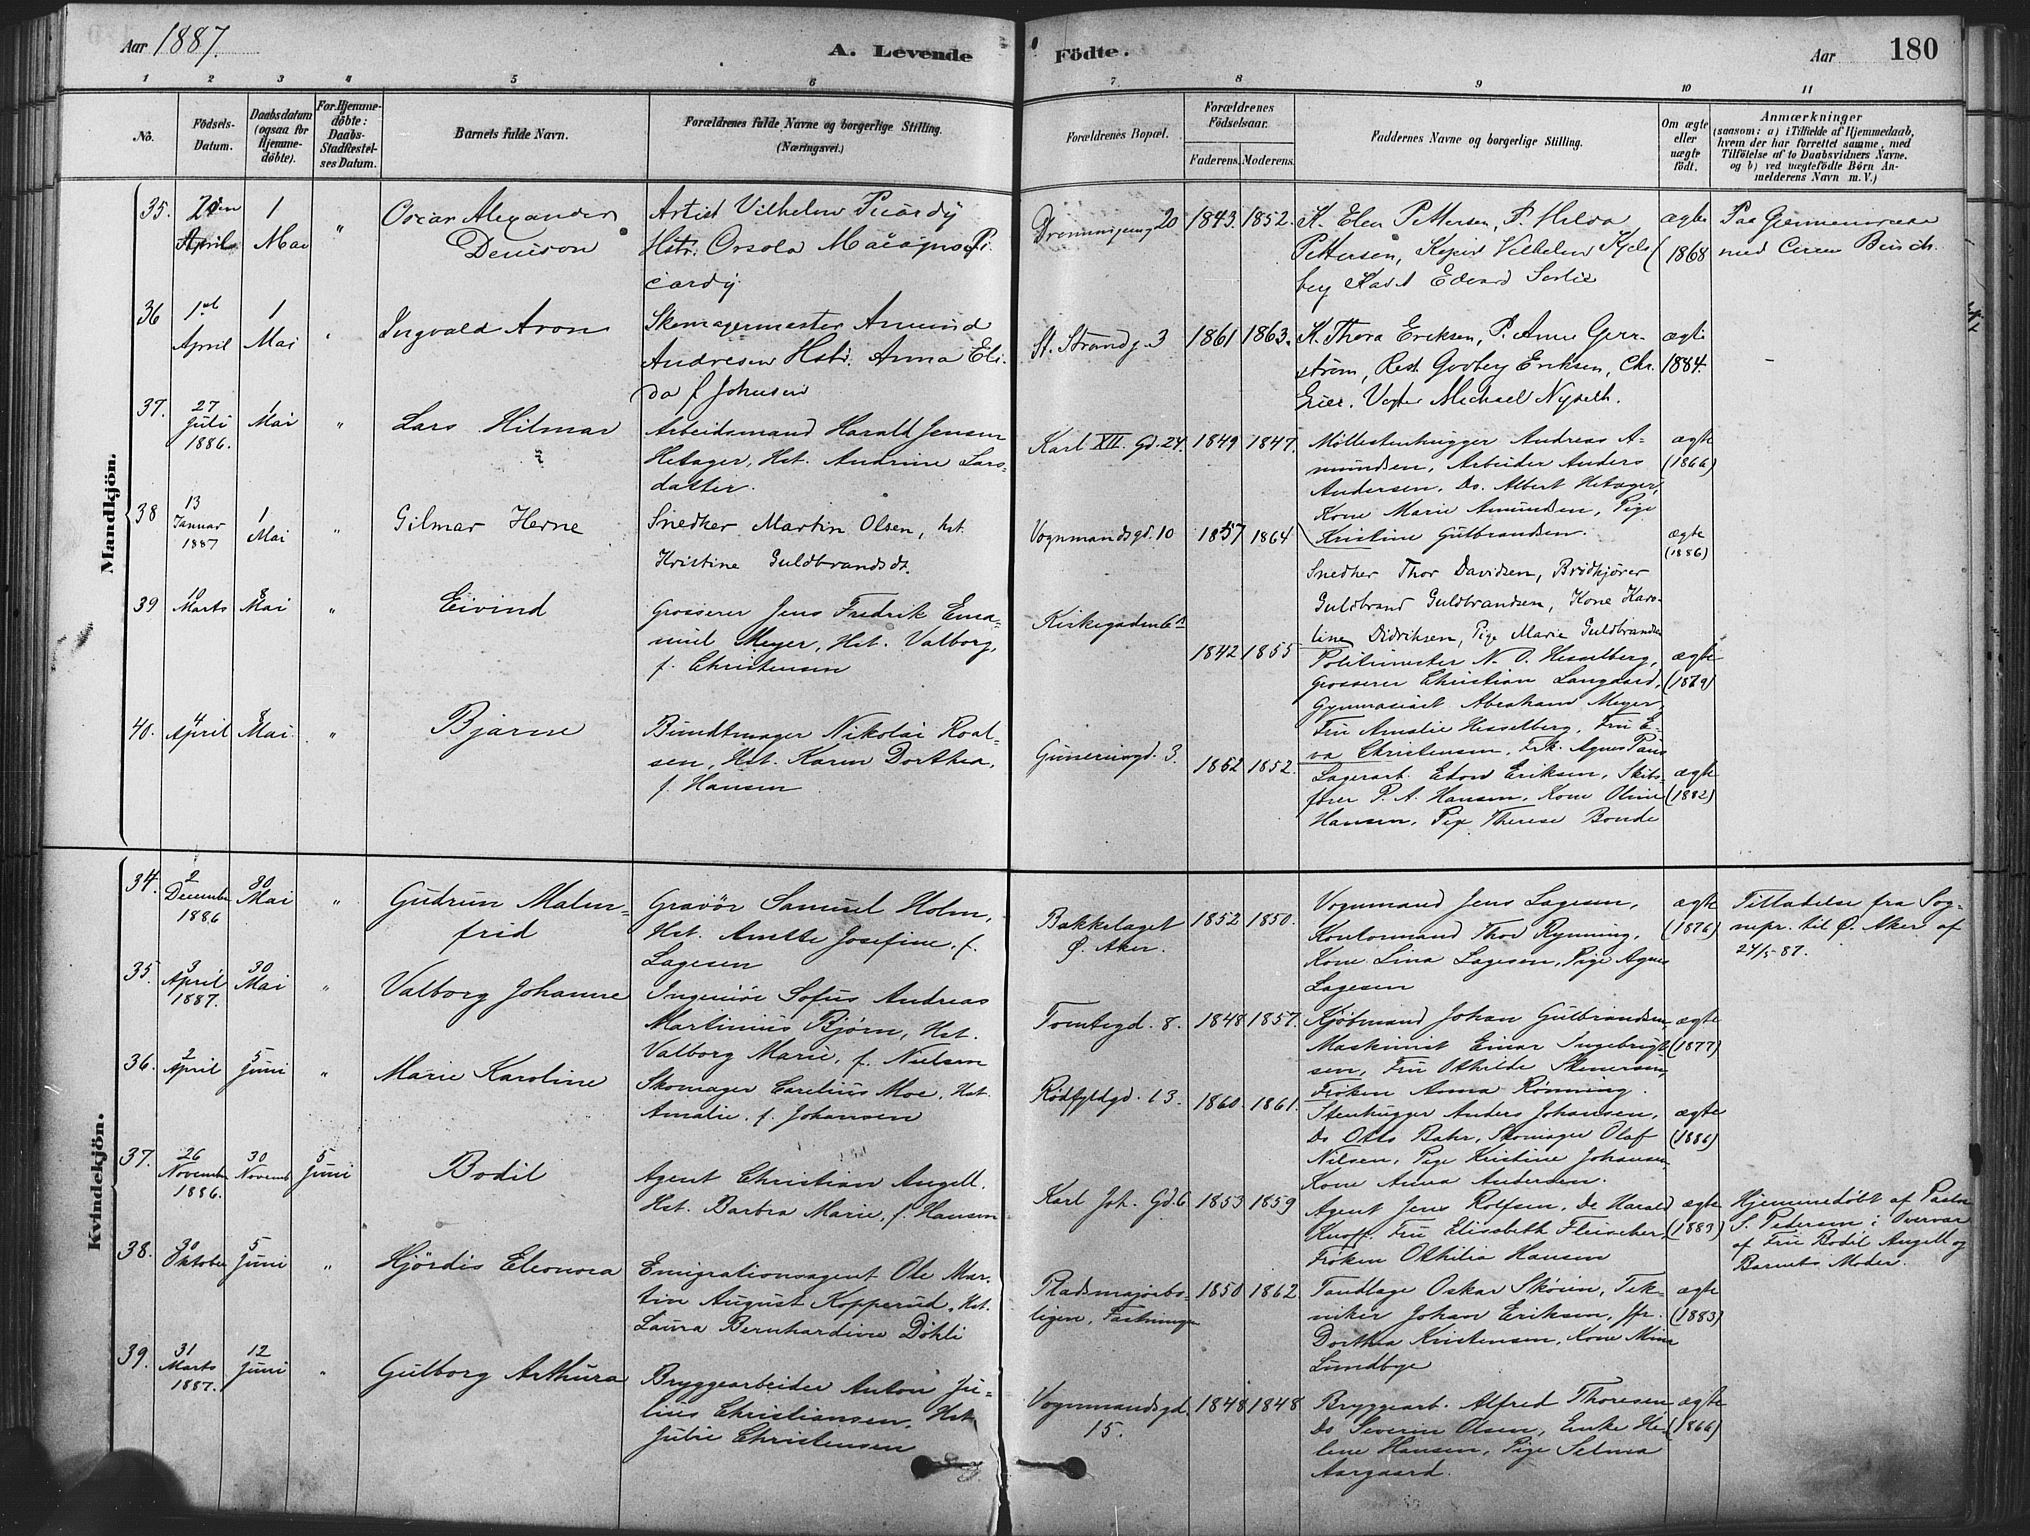 Aar 1887.
A. Levende Födte.
Aar 180
1 2 3 4 5 6 7 8 9 10 11
No.
Födsels-Datum.
Daabsdatum (ogsaa for Hjemme-döbte).
For Hjemme-döbte: Daabs-Stadfæstel-ses Datum.
Barnets fulde Navn.
Forældrenes fulde Navne og borgerlige Stilling.
(Næringsvei.)
Forældrenes Bopæl.
Forældrenes Födselsaar.
Faderens. Moderens.
Faddernes Navne og borgerlige Stilling.
Om ægte eller uægte født.
Anmærkninger
(saasom: a) i Tilfælde af Hjemmedaab,
hvem der har forrettet samme, med
Tilföielse af to Daabsvidners Navne.
og b) ved uægtefödte Börn An-
melderens Navn m. V.)
Mandkjön.
35.
April
1
Mai
"
Oscar Alexander
Denison
Artist Vilhelm Picardy
Hstr. Orsola
cardy
Dronningensg 20
1843. 1852.
K. Elen Pettersen, P. Hilda
Pettersen, Vilhelm
berg Edvard
ægte
1868
med
36
1
April
1
Mai
"
Ingvald Aron
Skomagermester Amund
Andresen Hstr. Anna Eli-
da f Johnsen
St. Strandg. 3
1861 1863.
K. Thora Eriksen, P. Anne
strøm, Godberg Eriksen, Chr.
Michael
ægte
1884.
37.
27
Juli
1886.
1
Mai
"
Lars Hilmar
Arbeidsmand Harald Jensen
Hetager, Hst. Andrine Lars-
datter.
Karl XII. Gd. 24.
1849 1847.
Møllestenhugger Andreas A-
mundsen, Arbeider Anders
Andersen, Ds. Albert Hetager,
Kone Marie Amundsen, Pige
Kristine Gulbrandsen.
ægte
(1866)
38
13
Januar
1887
1
Mai
"
Gilmar Herne
Snedker Martin Olsen, hst.
Kristine Guldbrandsdt.
Vognmandsgd. 10
1857 1864
Snedker Thor Davidsen, Brødkjører
Guldbrand Guldbrandsen, Kone Karo-
line Didriksen, Pige Marie Guldbrandsen
ægte
(1886)
39
10
Marts
8
Mai
"
Eivind
Grosserer Jens Fredrik Ema-
nuel Meyer, Hst. Valborg,
f. Christensen
Kirkegaden 6 B
1842 1855
Politimester N. O. Hesselberg,
Grosserer Christian Langaard,
Gymnasiast Abraham Meyer,
Fru Amalie Hesselberg, Fru E-
va Christensen, Frk. Agnes
ægte
(1879)
40.
4
April
8
Mai.
"
Bjarne
Bundtmager Nikolai Roal-
sen, Hst. Karen Dorthea,
f. Hansen
Gunerusgd. 3.
1852 1852.
Lagerarb. Edvard Eriksen, Skibs-
fører P. A. Hansen, Kone Oline
Hansen, Pige Therese Bonde
ægte
(1882)
Kvindekjön.
34.
2
December
1886
30
Mai
"
Gudrun Malm-
frid
Gravör Samuel Holm,
Hst. Anette Josefine, f.
Lagesen
Bækkelaget
Ø. Aker.
1852 1850.
Vognmand Jens Lagesen,
Kontormand Thor Rynning,
Kone Lina Lagesen, Pige Agnes
Lagesen
ægte
(1876)
Tilladelse fra Sog-
nepr. til Ø. Aker af
24/5-87.
35.
3
April
1887.
30
Mai
"
Valborg Johanne
Ingeniör Sofus Andreas
Martinius Bjørn, Hst.
Valborg Marie, f. Nielsen
Tomtegd. 8.
1848 1857.
Kjøbmand Johan Gulbrandsen,
Maskinist Einar Ingebrigt-
sen, Fru Othilde
Frøken Anna Rønning.
ægte
(1877)
36.
2
April
5
Juni
"
Marie Karoline
Skomager Carelius Moe, Hst.
Amalie, f. Johansen
Rødfyldgd. 13.
1860 1861.
Stenhugger Anders Johansen,
Ds Otto Bakr, Skomager Olaf
Nilsen, Pige Kristine Johansen
Kone Anna Andersen.
ægte
(1886)
37.
26
November
1886.
30
Novemb
5
Juni
Bodil
Agent Christian Angell,
Hst. Barbra Marie, f. Hansen
Karl Joh. Gd. 6
1853 1859
Agent Jens Rolfsen, Do Harald
Knoff, Fru Elisabeth Fleischer,
Frøken Othilia Hansen
ægte
(1883)
Hjemmedøbt af Pastor
S. Pedersen i Overvær
af Fru Bodil Angell og
Barnets Moder.
38.
30
Oktober
5
Juni
"
Hjördis Eleonora
Emigrationsagent Ole Mar-
tin August Kopperud, Hst.
Laura Bernhardine Döhli
Pladsmajorbo-
ligen, Fæstningen
1850 1862
Tandlæge Oskar Skören, Tek-
niker Johan Eriksen,
Dorthea Kristensen, Kone Mina
Lundbye
ægte
(1883)
39.
31
Marts
1887.
12
Juni
"
Gulborg Arthura
Bryggearbeider Anton Ju-
lius Christiansen, Hst.
Julie Christensen
Vognmandsgd.
15.
1848 1848
Bryggearb. Alfred Thoresen
Ds Severin Olsen, Enke He-
lene Hansen, Pige Selma
Aargaard.
ægte
(1866)